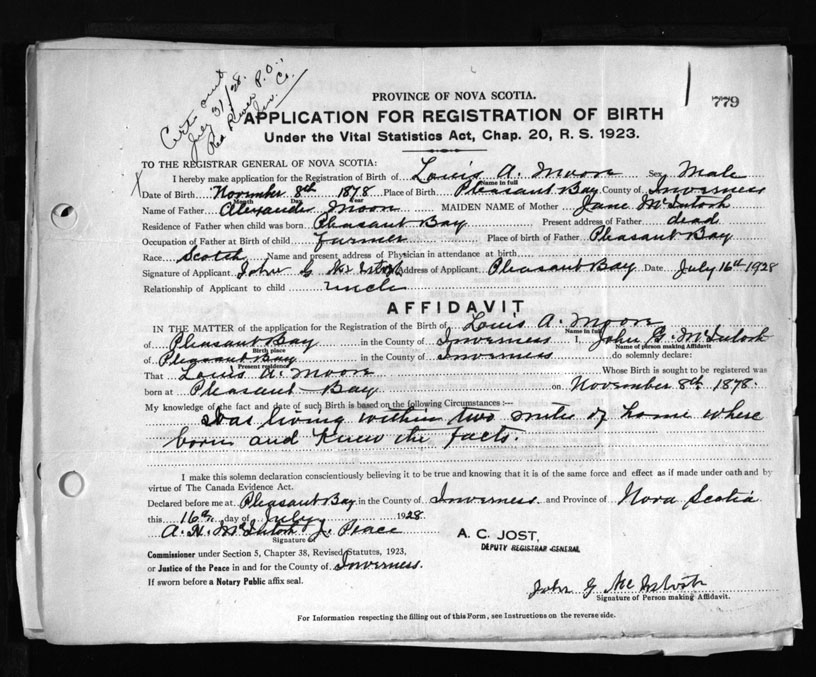 Certs out
July 31/28.
Red River P.O.,
Inv. Co.
779
PROVINCE OF NOVA SCOTIA.
APPLICATION FOR REGISTRATION OF BIRTH
Under the Vital Statistics Act, Chap. 20, R. S. 1923.
TO THE REGISTRAR GENERAL OF NOVA SCOTIA:
I hereby make application for the Registration of Birth of Louis A. Moore Sex Male
Name in full
Date of Birth November 8th 1878 Place of Birth Pleasant Bay County of Inverness
Month Day Year
Name of Father Alexander Moore MAIDEN NAME of Mother Jane McIntosh
Residence of Father when child was born Pleasant Bay Present address of Father dead
Occupation of Father at Birth of child Farmer Place of birth of Father Pleasant Bay
Race Scotch Name and present address of Physician in attendance at birth
Signature of Applicant John G McIntosh Address of Applicant. Pleasant Bay Date July 16th 1928
Relationship of Applicant to child uncle
AFFIDAVIT
IN THE MATTER of the application for the Registration of the Birth of Louis A. Moore
Name in full
of Pleasant Bay in the County of Inverness I, John G. McIntosh
Birth place Name of person making Affidavit
of Pleasant Bay in the County of Inverness do solemnly declare:
Present residence
That Louis A. Moore Whose Birth is sought to be registered was
born at Pleasant Bay on November 8th 1878.
My knowledge of the fact and date of such Birth is based on the following Circumstances :—
Was living within two miles of home where
born and Knew the facts.
I make this solemn declaration conscientiously believing it to be true and knowing that it is of the same force and effect as if made under oath and by
virtue of The Canada Evidence Act.
Declared before me at Pleasant Bay in the County of Inverness and Province of Nova Scotia
this 16th day of July 1928
A. N. McIntosh J. Peace
Signature
A. C. JOST,
DEPUTY REGISTRAR GENERAL
Commissioner under Section 5, Chapter 38, Revised Statutes, 1923,
or Justice of the Peace in and for the County of Inverness.
If sworn before a Notary Public affix seal.
John G McIntosh
Signature of Person making Affidavit.
For Information respecting the filling out of this Form, see Instructions on the reverse side.